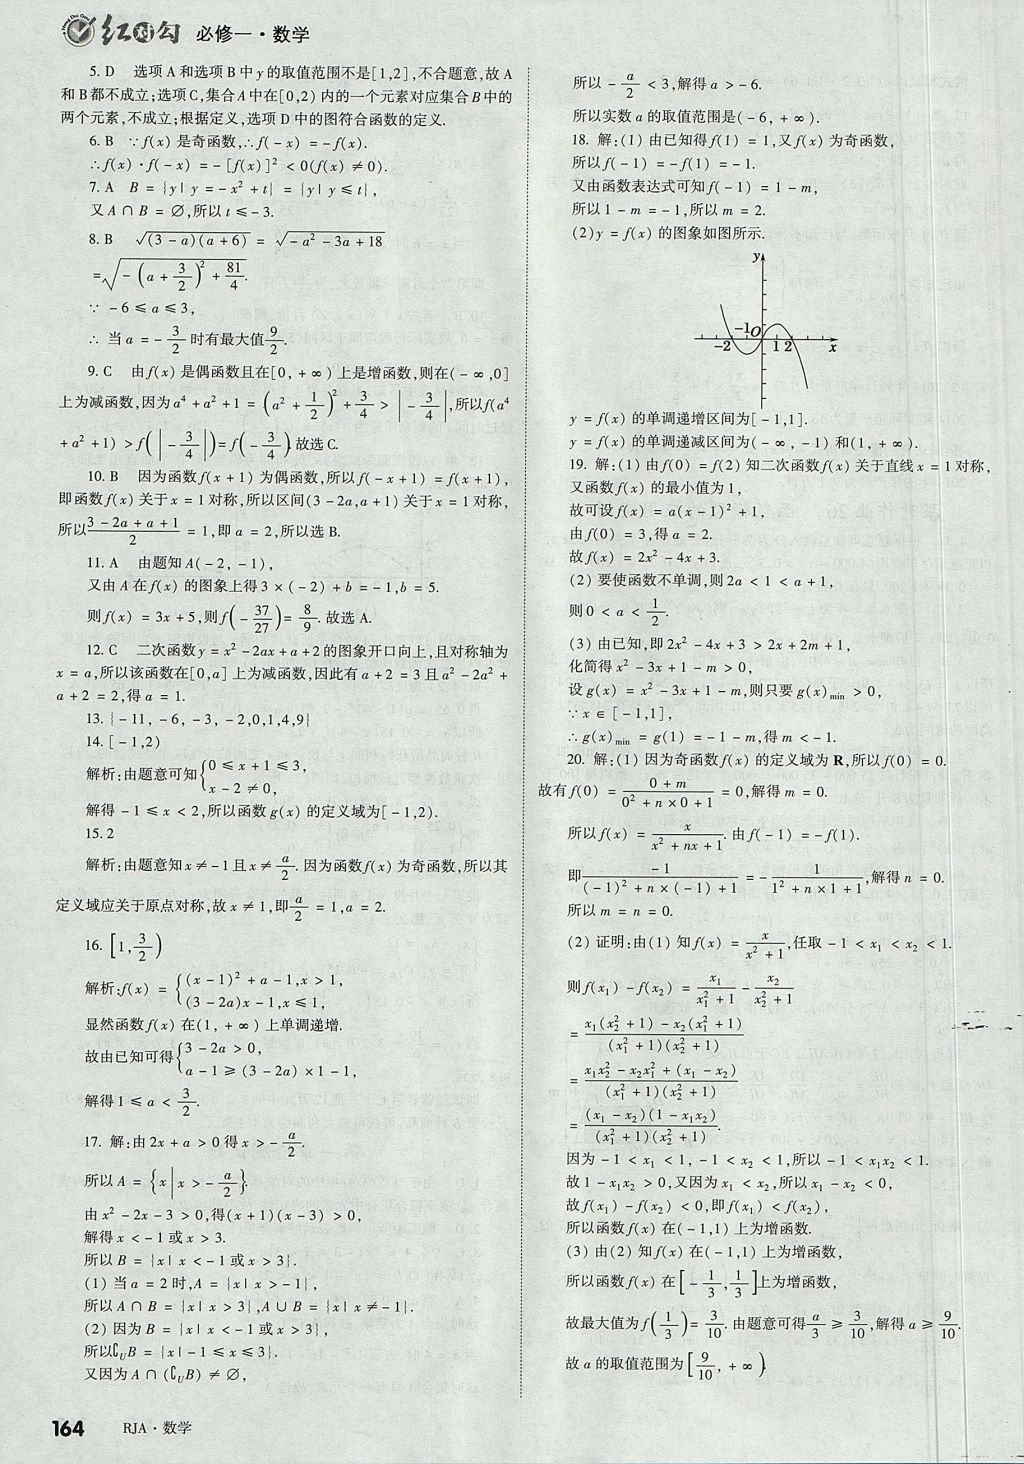 红对勾 必修一·数学
5. D 选项 A 和选项 B 中 y 的取值范围不是[1,2],不合题意,故 A
和 B 都不成立;选项 C,集合 A 中在[0,2) 内的一个元素对应集合 B 中的
两个元素,不成立;根据定义,选项 D 中的图符合函数的定义.
6. B ∵f(x) 是奇函数,∴f(-x) = -f(x).
∴f(x)·f(-x) = -[f(x)]² < 0(f(x) ≠ 0).
7. A B = {y|y = -x² + t} = {y|y ≤ t},
又 A∩B = ∅,所以 t ≤ -3.
8. B √((3-a)(a+6)) = √(-a²-3a+18)
= √(-(a + 3/2)² + 81/4).
∵ -6 ≤ a ≤ 3,
∴ 当 a = -3/2 时有最大值 9/2.
9. C 由 f(x) 是偶函数且在[0, +∞) 上是增函数,则在(-∞,0]
上为减函数,因为 a⁴ + a² + 1 = (a² + 1/2)² + 3/4 > |-3/4|,所以 f(a⁴
+ a² + 1) > f(|-3/4|) = f(-3/4).故选 C.
10. B 因为函数 f(x+1) 为偶函数,所以 f(-x+1) = f(x+1),
即函数 f(x) 关于 x = 1 对称,所以区间(3-2a,a+1) 关于 x = 1 对称,
所以 (3-2a+a+1)/2 = 1,即 a = 2,所以选 B.
11. A 由题知 A(-2,-1),
又由 A 在 f(x) 的图象上得 3×(-2)+b = -1,b = 5.
则 f(x) = 3x+5,则 f(-37/27) = 8/9.故选 A.
12. C 二次函数 y = x²-2ax+a+2 的图象开口向上,且对称轴为
x = a,所以该函数在[0,a] 上为减函数,因此有 a+2 = 3 且 a²-2a²+
a+2 = 2,得 a = 1.
13. {-11,-6,-3,-2,0,1,4,9}
14. [-1,2)
解析:由题意可知{0 ≤ x+1 ≤ 3, x-2 ≠ 0,
解得 -1 ≤ x < 2,所以函数 g(x) 的定义域为[-1,2).
15. 2
解析:由题意知 x ≠ -1 且 x ≠ a/2.因为函数 f(x) 为奇函数,所以其
定义域应关于原点对称,故 x ≠ 1,即 a/2 = 1,a = 2.
16. [1, 3/2)
解析:f(x) = {(x-1)²+a-1,x > 1, (3-2a)x-1,x ≤ 1,
显然函数 f(x) 在(1, +∞) 上单调递增.
故由已知可得{3-2a > 0, a-1 ≥ (3-2a)×1-1,
解得 1 ≤ a < 3/2.
17. 解:由 2x+a > 0 得 x > -a/2.
所以 A = {x|x > -a/2}.
由 x²-2x-3 > 0,得(x+1)(x-3) > 0,
解得 x < -1 或 x > 3.
所以 B = {x|x < -1 或 x > 3}.
(1) 当 a = 2 时,A = {x|x > -1},
所以 A∩B = {x|x > 3},A∪B = {x|x ≠ -1}.
(2) 因为 B = {x|x < -1 或 x > 3},
所以∁UB = {x|-1 ≤ x ≤ 3}.
又因为 A∩(∁UB) ≠ ∅,
所以 -a/2 < 3,解得 a > -6.
所以实数 a 的取值范围是(-6, +∞).
18. 解:(1) 由已知得 f(1) = 1,又 f(x) 为奇函数,
所以 f(-1) = -f(1) = -1.
又由函数表达式可知 f(-1) = 1-m,
所以 1-m = -1,所以 m = 2.
(2) y = f(x) 的图象如图所示.
y
-2 -1 O 1 2 x
y = f(x) 的单调递增区间为[-1,1].
y = f(x) 的单调递减区间为(-∞,-1) 和(1, +∞).
19. 解:(1) 由 f(0) = f(2) 知二次函数 f(x) 关于直线 x = 1 对称,
又函数 f(x) 的最小值为 1,
故可设 f(x) = a(x-1)²+1,
由 f(0) = 3,得 a = 2.
故 f(x) = 2x²-4x+3.
(2) 要使函数不单调,则 2a < 1 < a+1,
则 0 < a < 1/2.
(3) 由已知,即 2x²-4x+3 > 2x+2m+1,
化简得 x²-3x+1-m > 0,
设 g(x) = x²-3x+1-m,则只要 g(x)min > 0,
∵x∈[-1,1],
∴g(x)min = g(1) = -1-m,得 m < -1.
20. 解:(1) 因为奇函数 f(x) 的定义域为 R,所以 f(0) = 0.
故有 f(0) = (0+m)/(0²+n×0+1) = 0,解得 m = 0.
所以 f(x) = x/(x²+nx+1).由 f(-1) = -f(1).
即 -1/((-1)²+n×(-1)+1) = -1/(1²+n×1+1),解得 n = 0.
所以 m = n = 0.
(2) 证明:由(1) 知 f(x) = x/(x²+1),任取 -1 < x₁ < x₂ < 1.
则 f(x₁)-f(x₂) = x₁/(x₁²+1) - x₂/(x₂²+1)
= (x₁(x₂²+1)-x₂(x₁²+1))/((x₁²+1)(x₂²+1))
= (x₁x₂²-x₂x₁²+(x₁-x₂))/((x₁²+1)(x₂²+1))
= ((x₁-x₂)(1-x₁x₂))/((x₁²+1)(x₂²+1)).
因为 -1 < x₁ < 1,-1 < x₂ < 1,所以 -1 < x₁x₂ < 1.
故 1-x₁x₂ > 0,又因为 x₁ < x₂,所以 x₁-x₂ < 0,
故 f(x₁)-f(x₂) < 0,即 f(x₁) < f(x₂),
所以函数 f(x) 在(-1,1) 上为增函数.
(3) 由(2) 知 f(x) 在(-1,1) 上为增函数,
所以函数 f(x) 在[-1/3,1/3]上为增函数,
故最大值为 f(1/3) = 3/10.由题意可得 a/3 ≥ 3/10,解得 a ≥ 9/10.
故 a 的取值范围为[9/10, +∞).
164 RJA·数学